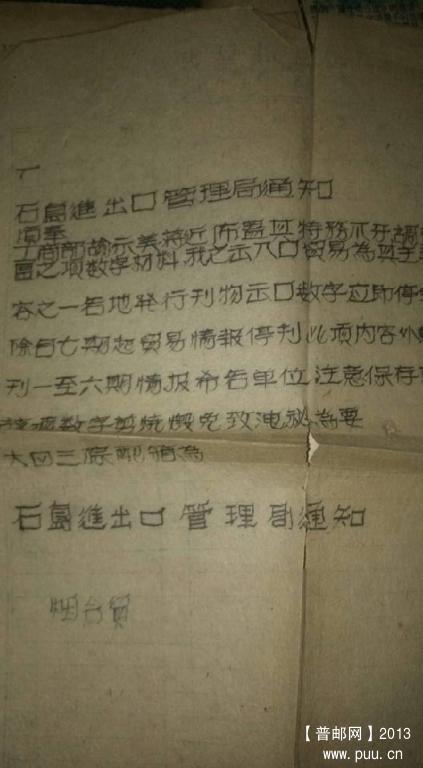 石島進出口管理局通知
項奉
工商部諭示美蔣近布置其特務不
之項数字材料我之出入口貿易為其主
容之一各地発行刊物出口数字应即停
除自七期起貿易情報停刊此項内容外
刊一至六期情报希各单位注意保存
数字剪燒燬免致洩祕為要
石島進出口管理局通知
烟台貿
【普邮网】2013
www.puu.cn